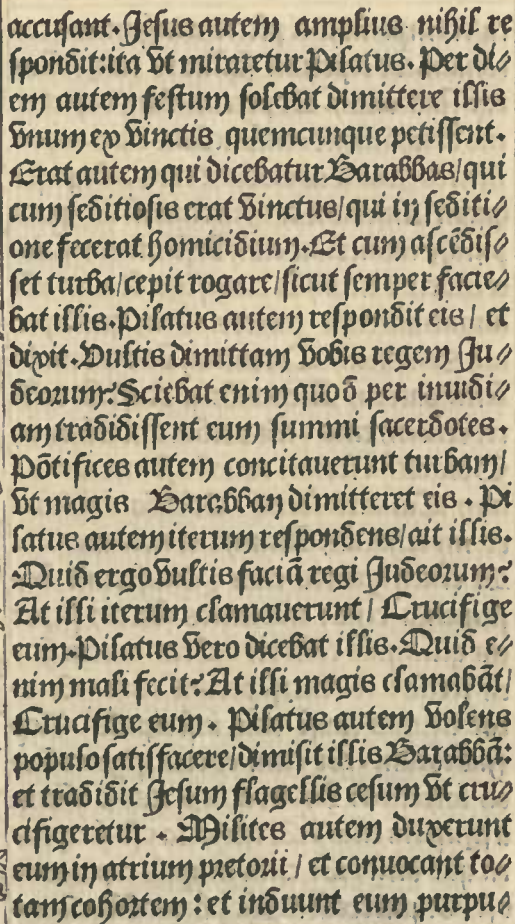 accusant. Jesus autem amplius nihil re
spondit: ita vt miraretur Pilatus. Per di⸗
em autem festum solebat dimittere illis
vnum ex vinctis quemcunque petissent.
Erat autem qui dicebatur Barabbas/ qui
cum seditiosis erat vinctus/ qui in sediti⸗
one fecerat homicidium. Et cum ascẽdis⸗
set turba/ cepit rogare/ sicut semper facie⸗
bat illis. Pilatus autem respondit eis / et
dixit. Vultis dimittam vobis regem Ju⸗
deorum? Sciebat enim quod per inuidi⸗
am tradidissent eum summi sacerdotes.
Põtifices autem concitauerunt turbam/
vt magis Barabban dimitteret eis . Pi
latus autem iterum respondens/ ait illis.
Quid ergo vultis faciã regi Judeorum?
At illi iterum clamauerunt / Crucifige
eum. Pilatus vero dicebat illis. Quid e⸗
nim mali fecit? At illi magis clamabãt/
Crucifige eum . Pilatus autem volens
populo satisfacere/ dimisit illis Barabbã:
et tradidit Jesum flagellis cesum vt cru⸗
cifigeretur . Milites autem duxerunt
eum in atrium pretorii / et conuocant to⸗
tam cohortem : et induunt eum purpu⸗